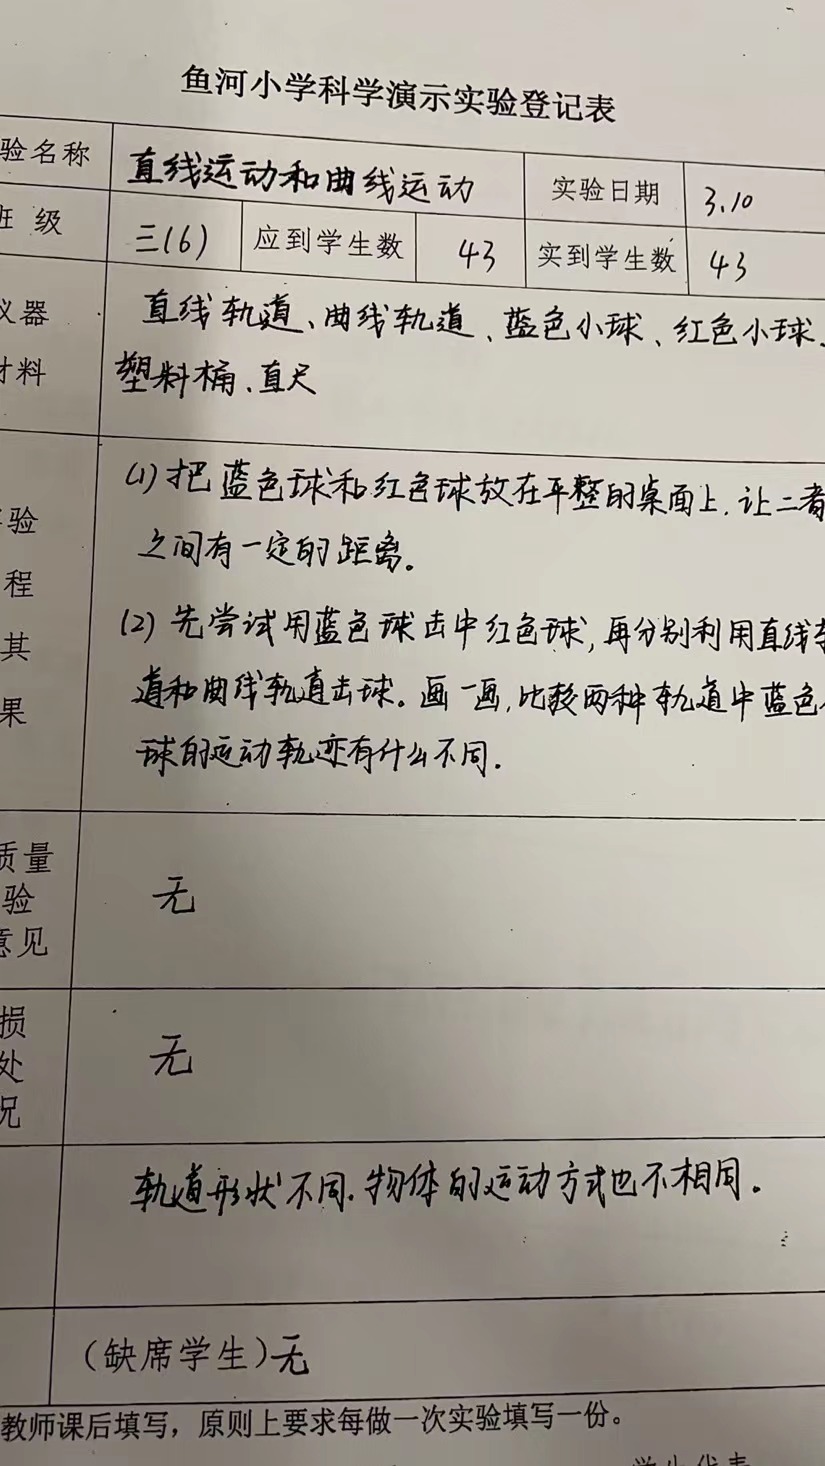 鱼河小学科学演示实验登记表
验名称 直线运动和曲线运动 实验日期 3.10
班 级 三(6) 应到学生数 43 实到学生数 43
仪器 直线轨道、曲线轨道、蓝色小球、红色小球、
材料 塑料桶、直尺
(1) 把蓝色球和红色球放在平整的桌面上,让二者
验
之间有一定的距离。
程
(2) 先尝试用蓝色球击中红色球,再分别利用直线轨
其
道和曲线轨道击球。画一画,比较两种轨道中蓝色小
果
球的运动轨迹有什么不同.
质量
验 无
意见
损
处 无
况
轨道形状不同.物体的运动方式也不相同.
(缺席学生)无
教师课后填写，原则上要求每做一次实验填写一份。
学生代表